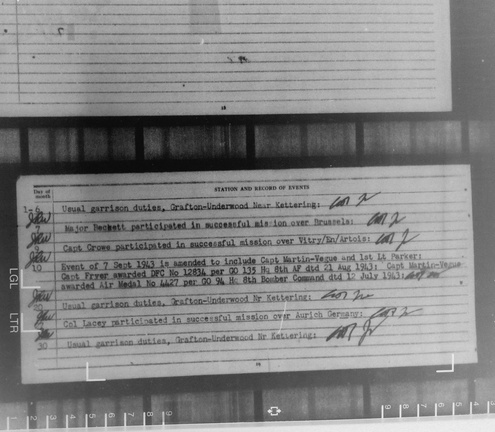 18
STATION AND RECORD OF EVENTS
Day of
month
1-6 Usual garrison duties, Grafton-Underwood Near Kettering:
7 Major Beckett participated in successful mission over Brussels:
9 Capt Crowe participated in successful mission over Vitry/En/Artois:
10 Event of 7 Sept 1943 is amended to include Capt Martin-Vegue and 1st Lt Parker:
Capt Fryer awarded DFC No 12834 per GO 135 Hq 8th AF dtd 21 Aug 1943: Capt Martin-Vegue
awarded Air Medal No 4427 per GO 94 Hq 8th Bomber Command dtd 12 July 1943:
Usual garrison duties, Grafton-Underwood Nr Kettering:
Col Lacey participated in successful mission over Aurich Germany:
30 Usual garrison duties, Grafton-Underwood Nr Kettering:
LGL
LTR
1 2 3 4 5 6 7 8 9
9 8 7 6 5 4 3